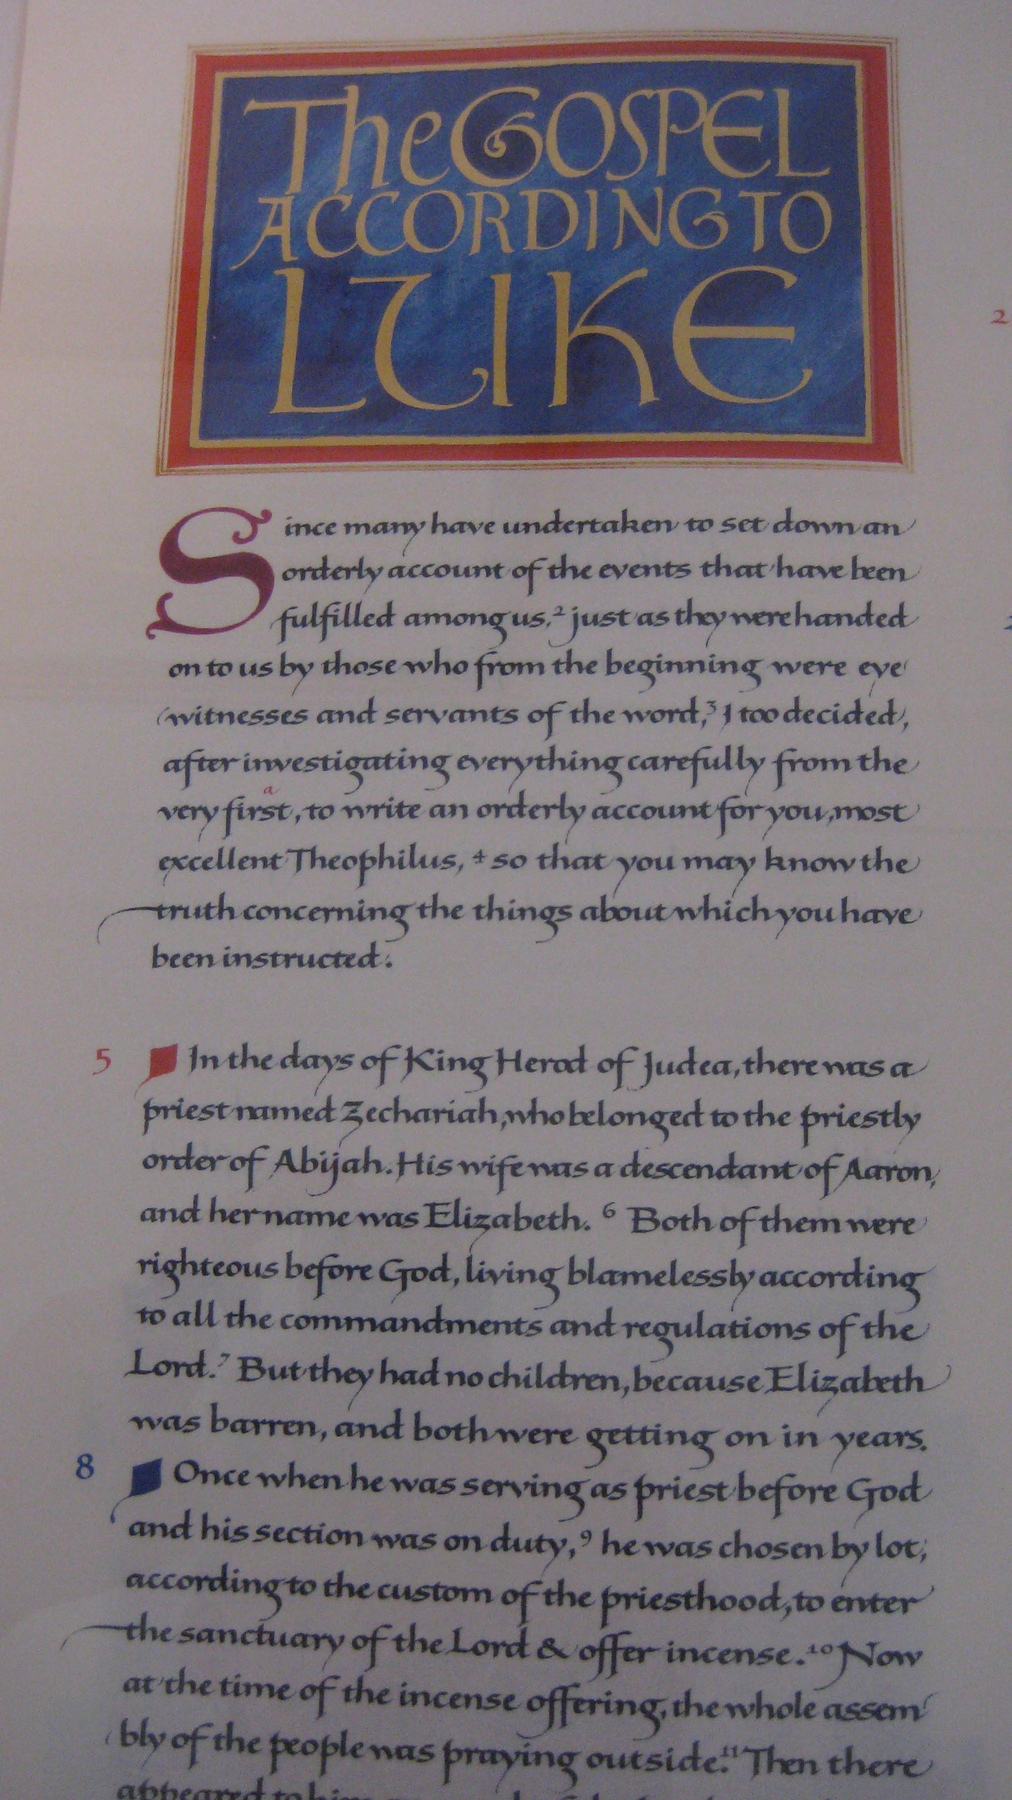 The GOSPEL
ACCORDING TO
LUKE
Since many have undertaken to set down an
orderly account of the events that have been
fulfilled among us, 2 just as they were handed
on to us by those who from the beginning were eye
witnesses and servants of the word, 3 I too decided,
after investigating everything carefully from the
very first, a to write an orderly account for you, most
excellent Theophilus, 4 so that you may know the
truth concerning the things about which you have
been instructed.
5 In the days of King Herod of Judea, there was a
priest named Zechariah, who belonged to the priestly
order of Abijah. His wife was a descendant of Aaron,
and her name was Elizabeth. 6 Both of them were
righteous before God, living blamelessly according
to all the commandments and regulations of the
Lord. 7 But they had no children, because Elizabeth
was barren, and both were getting on in years.
8 Once when he was serving as priest before God
and his section was on duty, 9 he was chosen by lot,
according to the custom of the priesthood, to enter
the sanctuary of the Lord & offer incense. 10 Now
at the time of the incense offering, the whole assem
bly of the people was praying outside. 11 Then there
appeared to him
2